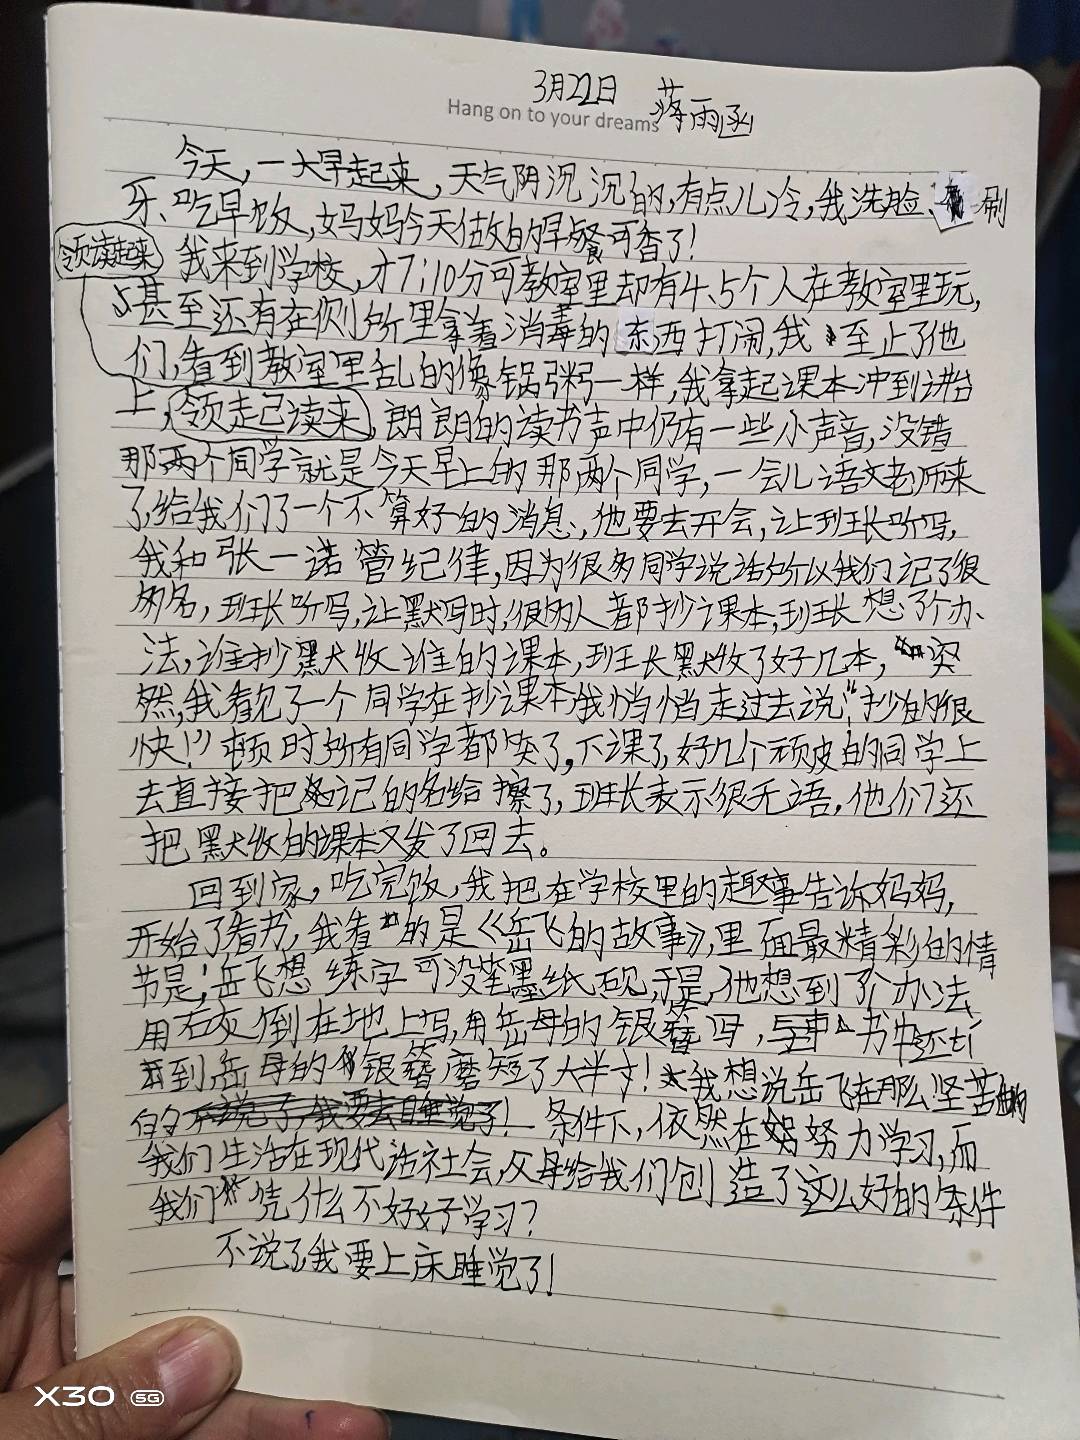 3月22日 蒋雨函
Hang on to your dreams
今天,一大早起来,天气阴沉沉的,有点儿冷,我洗脸、刷
牙、吃早饭,妈妈今天做的早餐可香了!
领读起来
我来到学校,才7:10分可教室里却有4、5个人在教室里玩,
甚至还有在侧所里拿着消毒的东西打闹,我至止了他
们,看到教室里乱的像锅粥一样,我拿起课本冲到讲台
上,领走己读来,朗朗的读书声中仍有一些小声音,没错
那两个同学就是今天早上的那两个同学,一会儿语文老师来
了,给我们了一个不算好的消息,他要去开会,让班长听写,
我和张一诺管纪律,因为很多同学说话所以我们记了很
多名,班长听写,让默写时,很多人都抄课本,班长想了个办
法,谁抄默收谁的课本,班长默收了好几本,突
然,我看见了一个同学在抄课本我悄悄走过去说“抄的很
快!”顿时所有同学都笑了,下课了,好几个顽皮的同学上
去直接把记的名给擦了,班长表示很无语,他们还
把默收的课本又发了回去。
回到家,吃完饭,我把在学校里的趣事告诉妈妈,
开始了看书,我看的是《岳飞的故事》,里面最精彩的情
节是:岳飞想练字可没笔墨纸砚,于是,他想到了个办法
用石灰倒在地上写,用岳母的银簪写,书中还写
到岳母的银簪磨短了大半寸!我想说岳飞在那么坚苦
的不说了,我要去睡觉了!条件下,依然在努力学习,而
我们生活在现代社会,父母给我们创造了这么好的条件
我们凭什么不好好学习?
不说了,我要上床睡觉了!
X30 5G